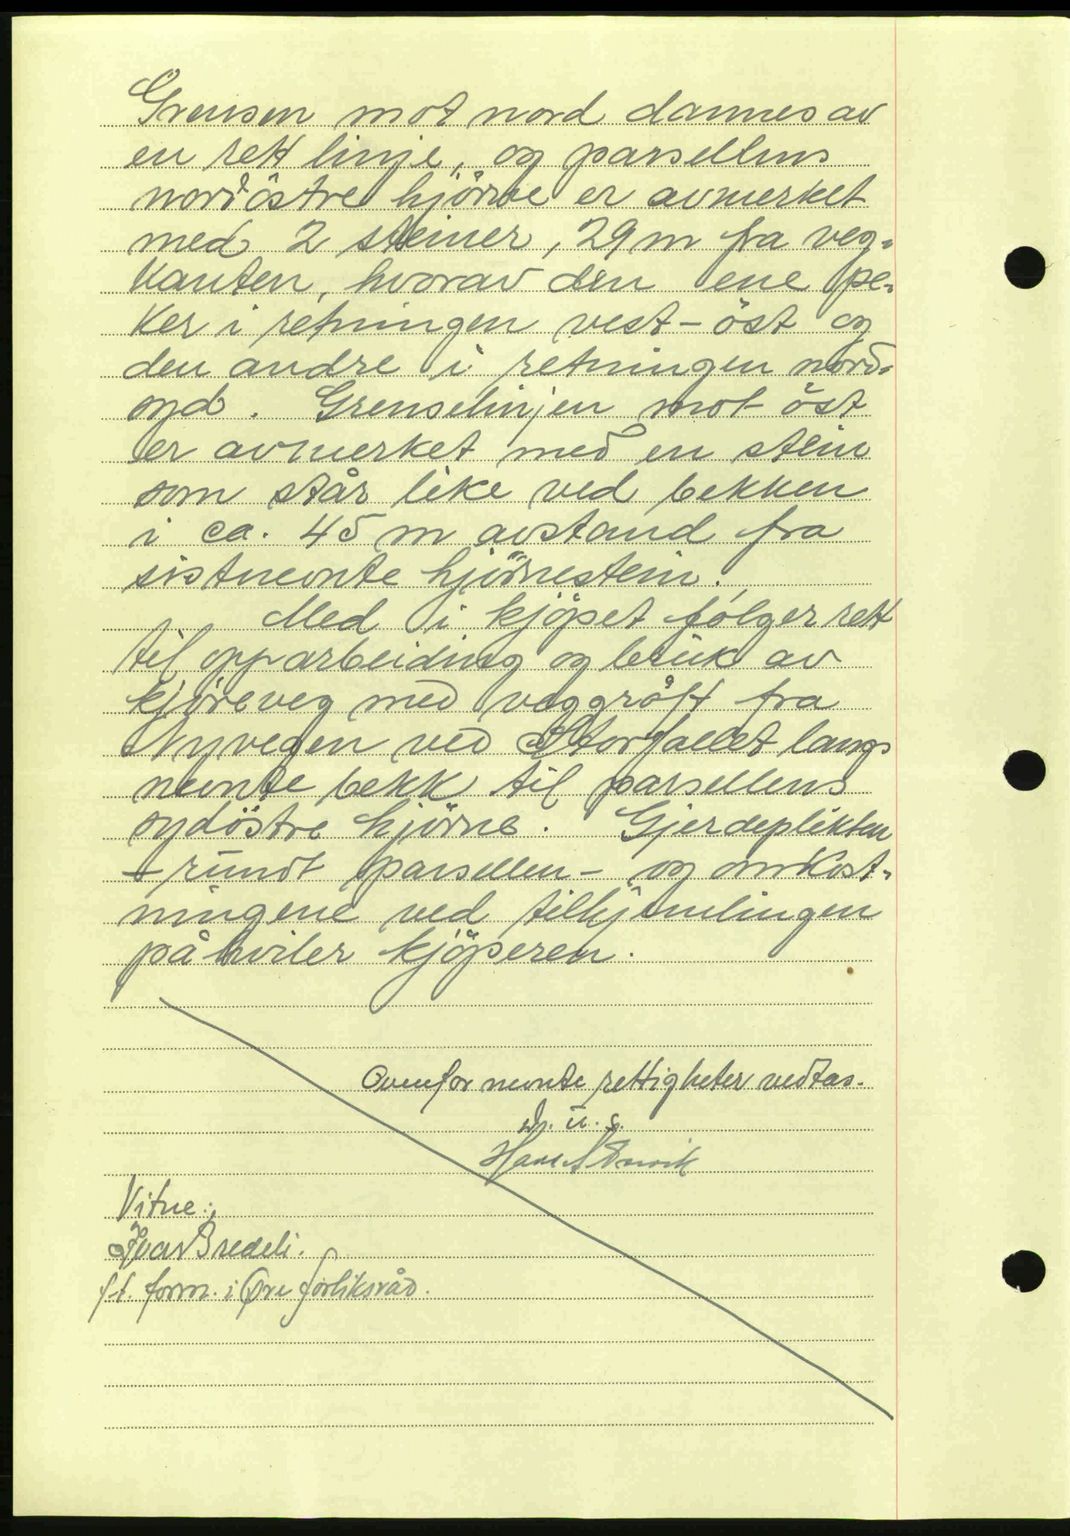 Grensen mot nord dannes av
en rett linje, og parsellens
nordöstre hjörne er avmerket
med 2 steiner, 29 m fra veg-
kanten, hvorav den ene pe-
ker i retningen vest - öst og
den andre i retningen nord-
syd. Grenselinjen mot öst
er avmerket med en stein
som står like ved bekken
i ca. 45 m avstand fra
sistnevnte hjörnestein.
Med i kjöpet fölger rett
til opparbeiding og bruk av
kjöreveg med veggröft fra
Nyvegen ved Storfallet langs
nevnte bekk til parsellens
sydöstre hjörne. Gjerdeplikten
- rundt parsellen - og omkost-
ningene ved tilhjemlingen
påhviler kjöperen.
Ovenfor nevnte rettigheter vedtas.
D. u. s.
Hans
Vitne:
Ivar Bredeli.
f.t. form. i Øre forliksråd.